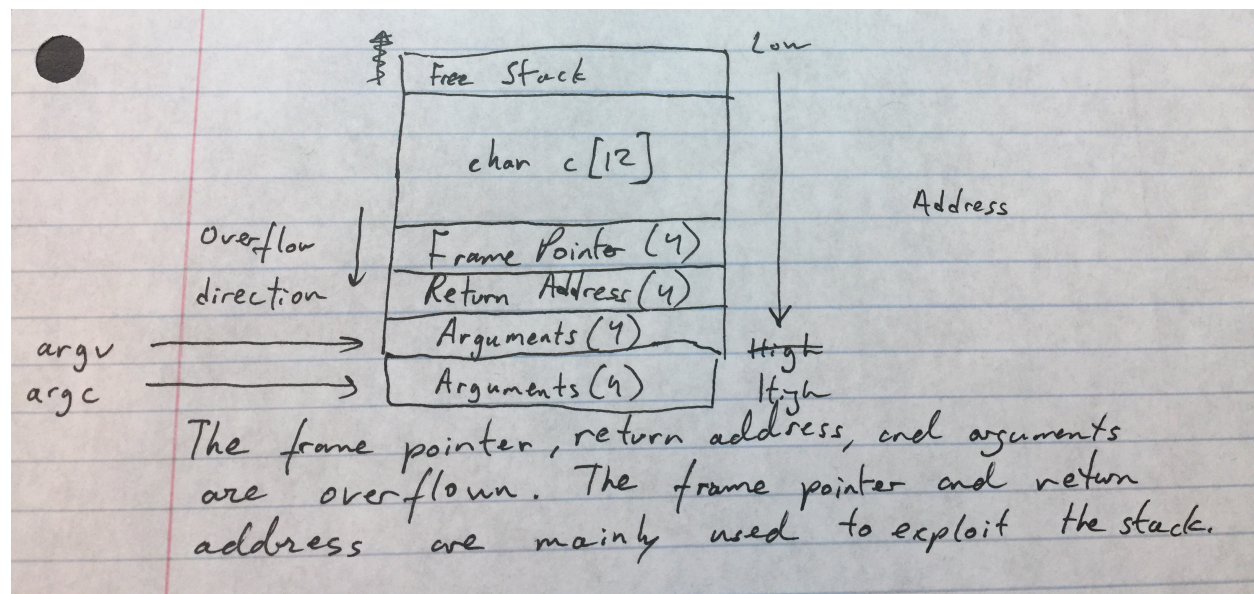 Low
Free Stack
char c [12]
Address
Overflow
direction
Frame Pointer (4)
Return Address (4)
argv
Arguments (4)
High
argc
Arguments (4)
High
The frame pointer, return address, and arguments
are overflown. The frame pointer and return
address are mainly used to exploit the stack.